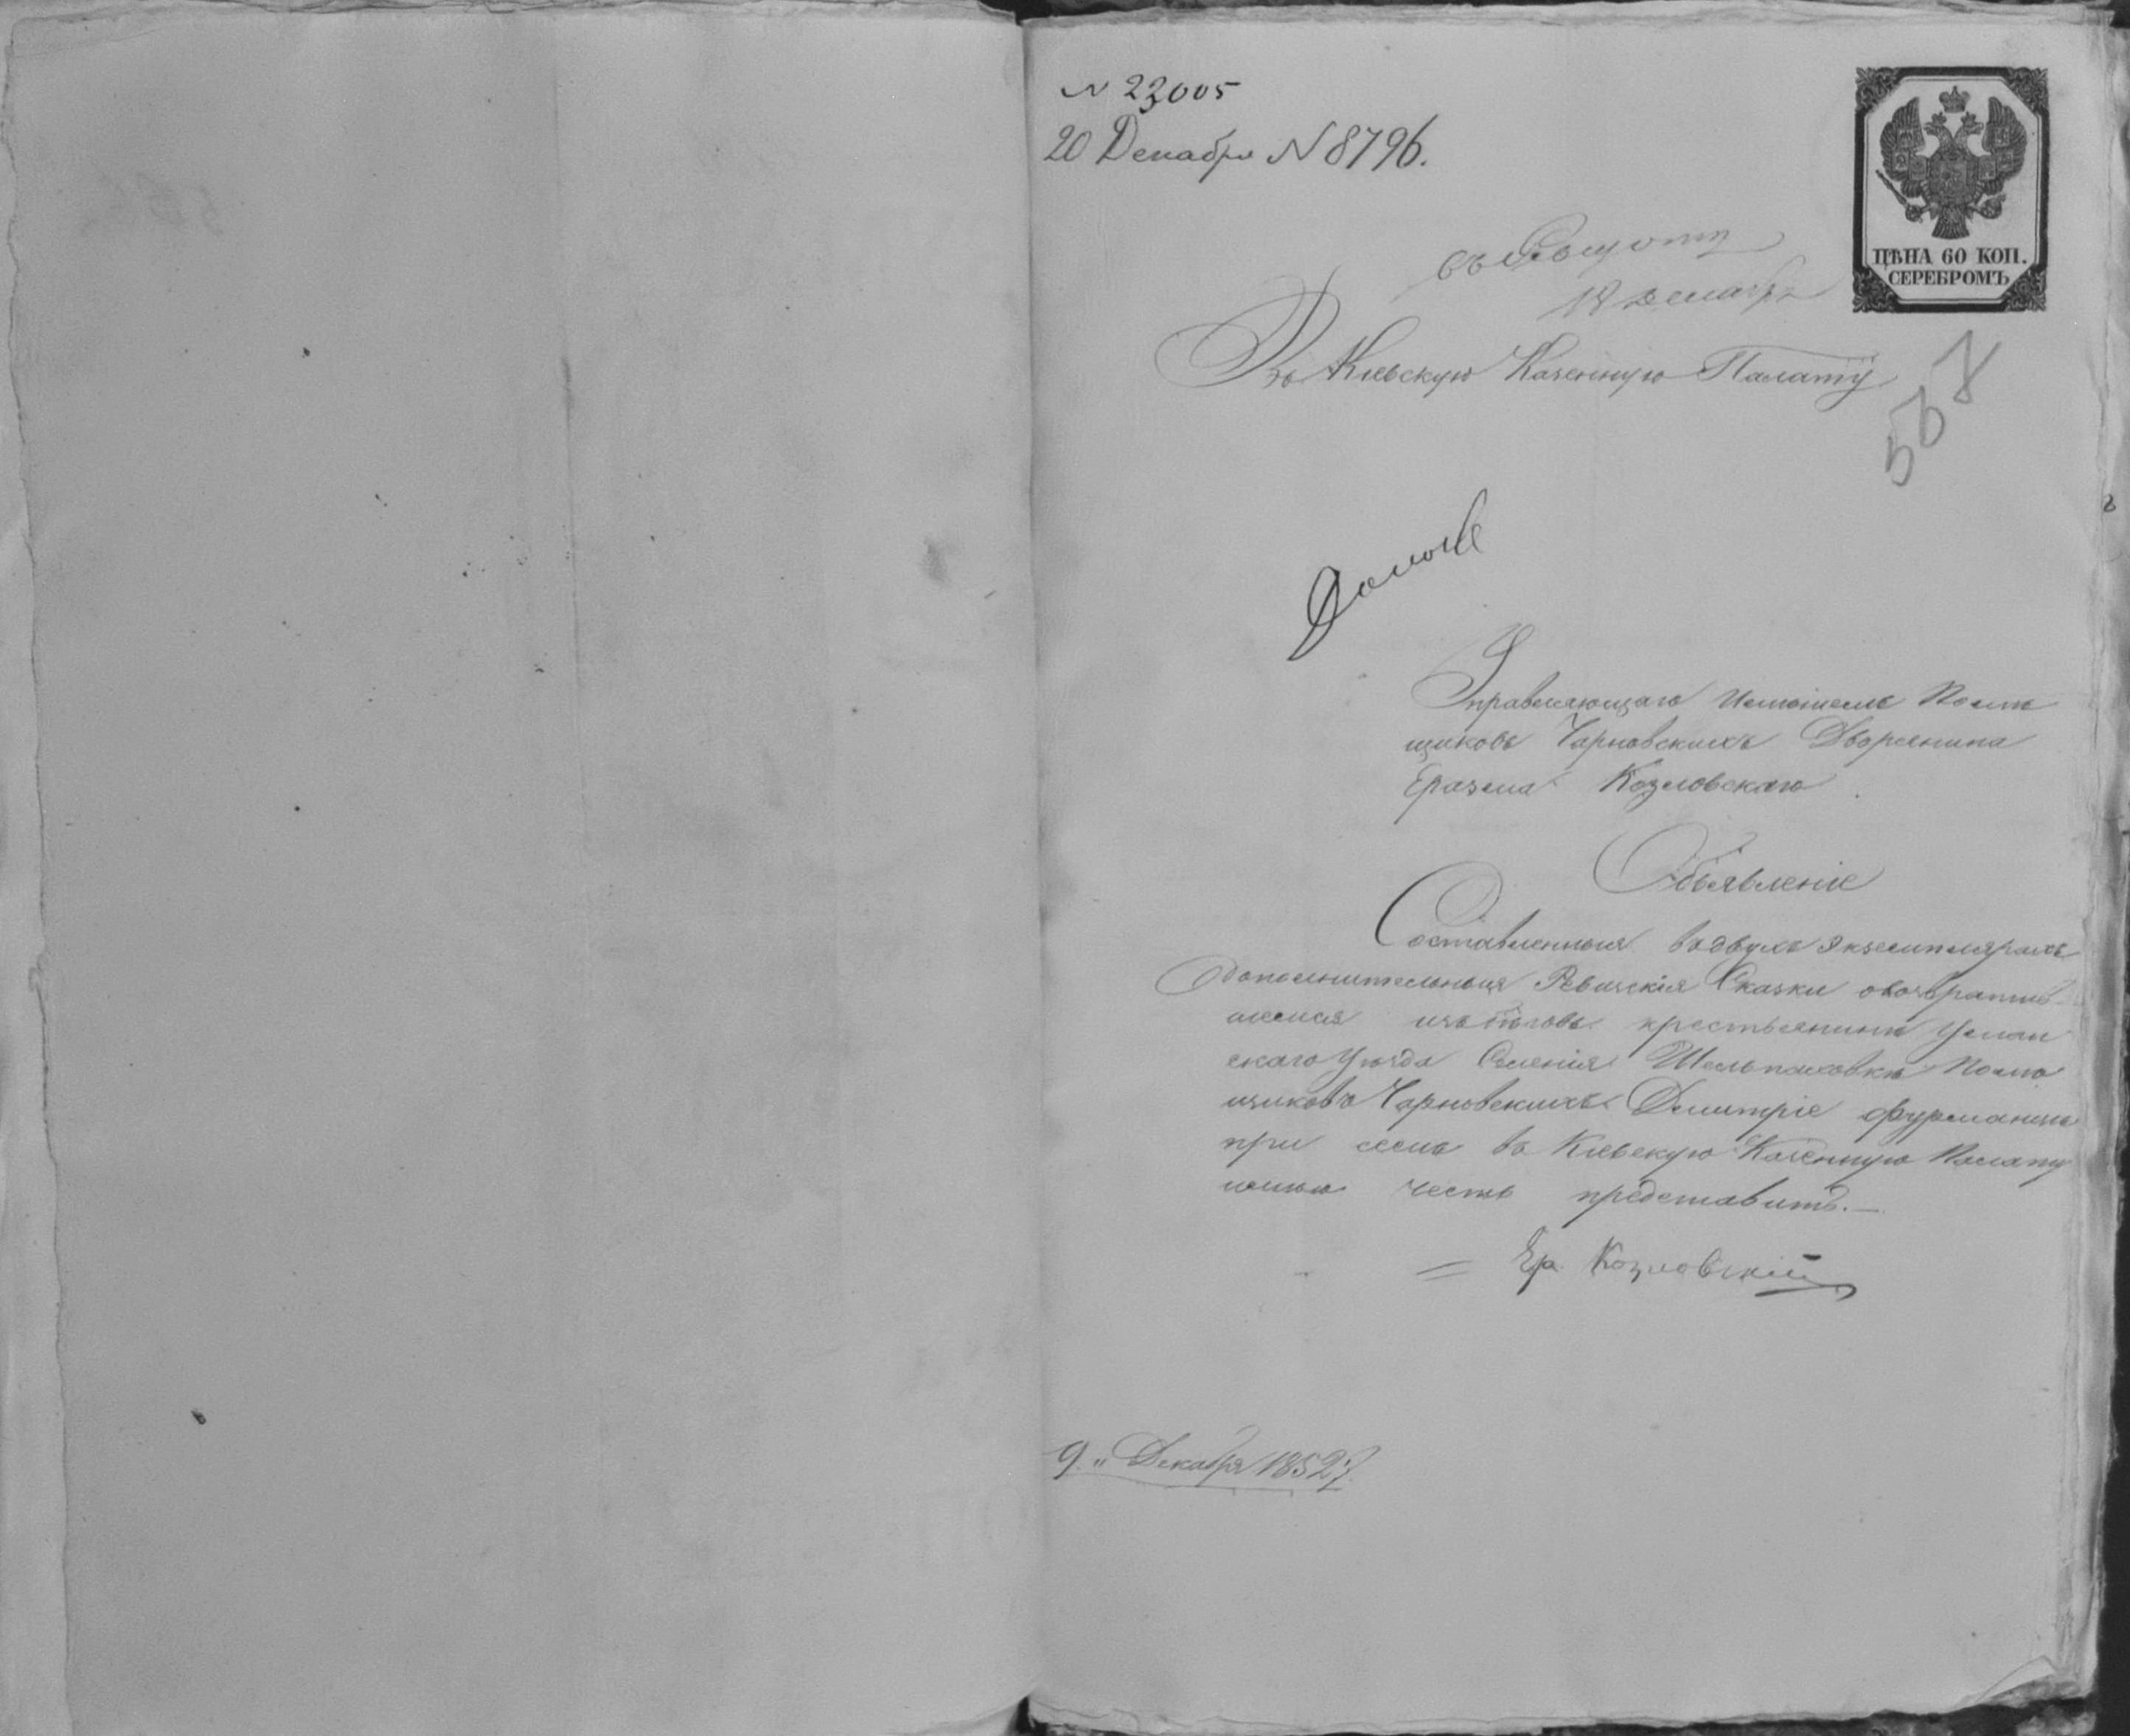 N 23005
20 Декабря N 8796.
ЦѢНА 60 КОП.
СЕРЕБРОМЪ
18 декабря
Въ Кіевскую Казенную Палату
Управляющаго Имѣніемъ Помѣ
щиковъ Чарновскихъ Дворянина
Еразма Козловскаго
Объявленіе
Составленныя въ двухъ экземплярахъ
дополнительныя Ревизскія Сказки о возвратив-
шемся изъ бѣговъ крестьянинѣ Уман
скаго Уѣзда Селенія Шельпаховки Помѣ
щиковъ Чарновскихъ Димитріе Фурманѣ
при семъ въ Кіевскую Казенную Палату
имѣю честь представить.—
Ер. Козловскій
9 „ Декабря 1852 г.